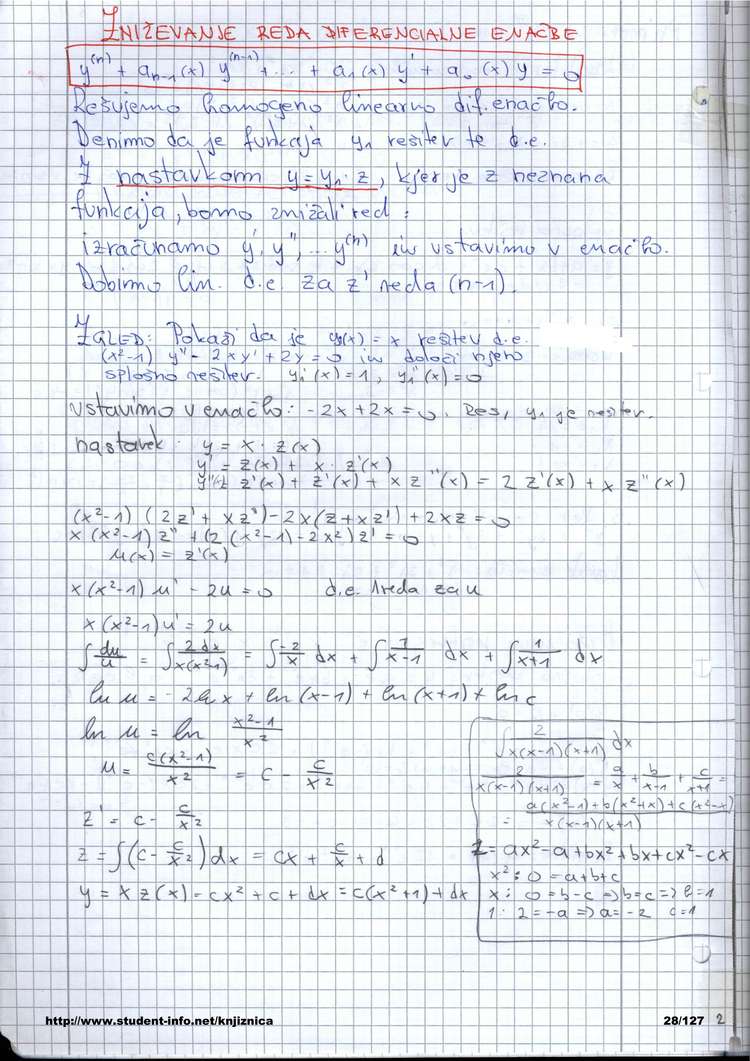 ZNIŽEVANJE REDA DIFERENCIALNE ENAČBE
y⁽ⁿ⁾ + aₙ₋₁(x) y⁽ⁿ⁻¹⁾ + ... + a₁(x) y' + a₀(x) y = 0
Rešujemo homogeno linearno dif. enačbo.
Denimo da je funkcija y₁ rešitev te d.e.
Z nastavkom y = y₁ · z, kjer je z neznana
funkcija, bomo znižali red:
izračunamo y', y'', ... y⁽ⁿ⁾ in vstavimo v enačbo.
Dobimo lin. d.e. za z' reda (n-1).
ZGLED: Pokaži da je y₁(x) = x rešitev d.e.
(x²-1) y'' - 2xy' + 2y = 0 in določi njeno
splošno rešitev. y₁'(x) = 1, y₁''(x) = 0
vstavimo v enačbo: -2x + 2x = 0. Res, y₁ je rešitev.
nastavek: y = x · z(x)
y' = z(x) + x · z'(x)
y'' = z'(x) + z'(x) + x z''(x) = 2 z'(x) + x z''(x)
(x²-1) (2z' + xz'') - 2x(z + xz') + 2xz = 0
x(x²-1) z'' + (2(x²-1) - 2x²) z' = 0
u(x) = z'(x)
x(x²-1) u' - 2u = 0 d.e. 1reda za u
x(x²-1) u' = 2u
∫ du/u = ∫ 2dx/x(x²-1) = ∫ -2/x dx + ∫ 1/x-1 dx + ∫ 1/x+1 dx
ln u = -2 ln x + ln (x-1) + ln (x+1) + ln c
ln u = ln x²-1/x²
u = c(x²-1)/x² = c - c/x²
z' = c - c/x²
z = ∫(c - c/x²)dx = cx + c/x + d
y = x z(x) = cx² + c + dx = c(x²+1) + dx
∫ 2/x(x-1)(x+1) dx
2/x(x-1)(x+1) = a/x + b/x-1 + c/x+1 =
= a(x²-1) + b(x²+x) + c(x²-x)/x(x-1)(x+1)
2 = ax² - a + bx² + bx + cx² - cx
x²: 0 = a+b+c
x: 0 = b-c => b=c => b=1
1: 2 = -a => a = -2 c=1
http://www.student-info.net/knjiznica
28/127 2